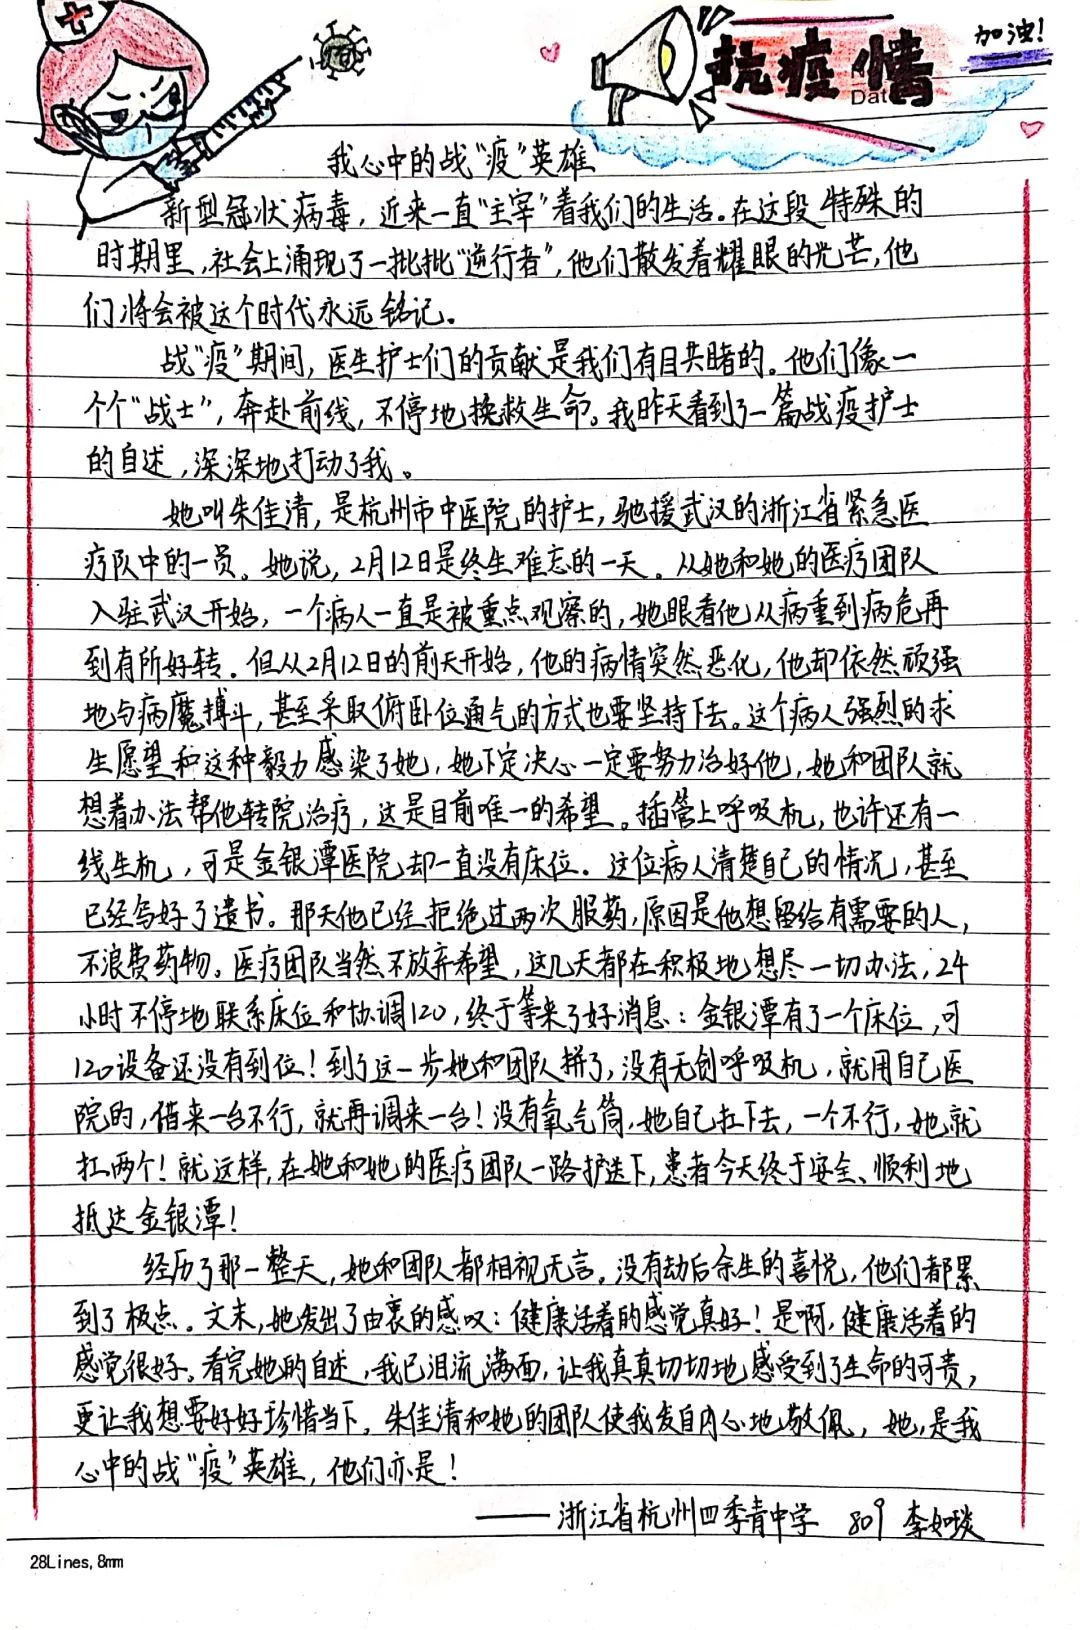 加油!
抗疫情
Dat
我心中的战“疫”英雄
新型冠状病毒，近来一直“主宰”着我们的生活。在这段特殊的
时期里，社会上涌现了一批批“逆行者”，他们散发着耀眼的光芒，他
们将会被这个时代永远铭记。
战“疫”期间，医生护士们的贡献是我们有目共睹的。他们像一
个个“战士”，奔赴前线，不停地挽救生命。我昨天看到了一篇战疫护士
的自述，深深地打动了我。
她叫朱佳清，是杭州市中医院的护士，驰援武汉的浙江省紧急医
疗队中的一员。她说，2月12日是终生难忘的一天。从她和她的医疗团队
入驻武汉开始，一个病人一直是被重点观察的，她眼看他从病重到病危再
到有所好转。但从2月12日的前天开始，他的病情突然恶化，他却依然顽强
地与病魔搏斗，甚至采取俯卧位通气的方式也要坚持下去。这个病人强烈的求
生愿望和这种毅力感染了她，她下定决心一定要努力治好他，她和团队就
想着办法帮他转院治疗，这是目前唯一的希望。插管上呼吸机，也许还有一
线生机，可是金银潭医院却一直没有床位。这位病人清楚自己的情况，甚至
已经写好了遗书。那天他已经拒绝过两次服药，原因是他想留给有需要的人，
不浪费药物。医疗团队当然不放弃希望，这几天都在积极地想尽一切办法，24
小时不停地联系床位和协调120，终于等来了好消息：金银潭有了一个床位，可
120设备还没有到位！到了这一步她和团队拼了，没有无创呼吸机，就用自己医
院的，借来一台不行，就再调来一台！没有氧气筒，她自己扛下去，一个不行，她就
扛两个！就这样，在她和她的医疗团队一路护送下，患者今天终于安全、顺利地
抵达金银潭！
经历了那一整天，她和团队都相视无言。没有劫后余生的喜悦，他们都累
到了极点。文末，她发出了由衷的感叹：健康活着的感觉真好！是啊，健康活着的
感觉很好。看完她的自述，我已泪流满面，让我真真切切地感受到了生命的可贵，
更让我想要好好珍惜当下。朱佳清和她的团队使我发自内心地敬佩，她，是我
心中的战“疫”英雄，他们亦是！
——浙江省杭州四季青中学 809 李如琰
28Lines,8mm